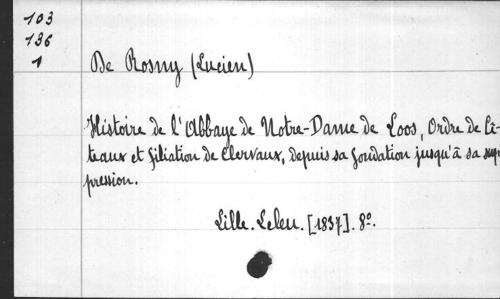 103
136
1
De Rosny (Lucien)
Histoire de l'Abbaye de Notre-Dame de Loos, Ordre de Cî-
teaux et filiation de Clervaux, depuis sa fondation jusqu'à sa sup
pression.
Lille. Leleu. [1837]. 8º.